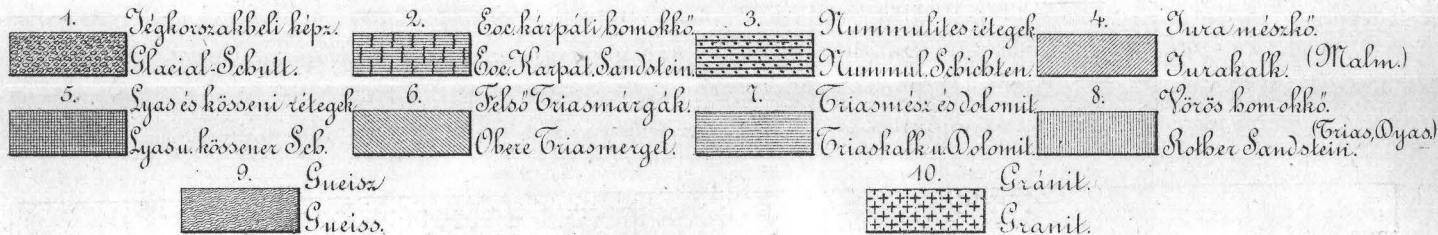 1. Jégkorszakbeli képz.
Glacial-Schutt.
2. Eoc. kárpáti homokkő.
Eoc. Karpat. Sandstein.
3. Nummulites rétegek
Nummul. Schichten.
4. Jura mészkő.
Jurakalk. (Malm.)
5. Lyas és kösseni rétegek
Lyas u. kössener Sch.
6. Felső Triasmárgák.
Obere Triasmergel.
7. Triasmész es dolomit
Triaskalk u. Dolomit.
8. Vörös homokkő.
Rother Sandstein. (Trias, Dyas.)
9. Gneisz
Gneiss.
10. Gránit.
Granit.